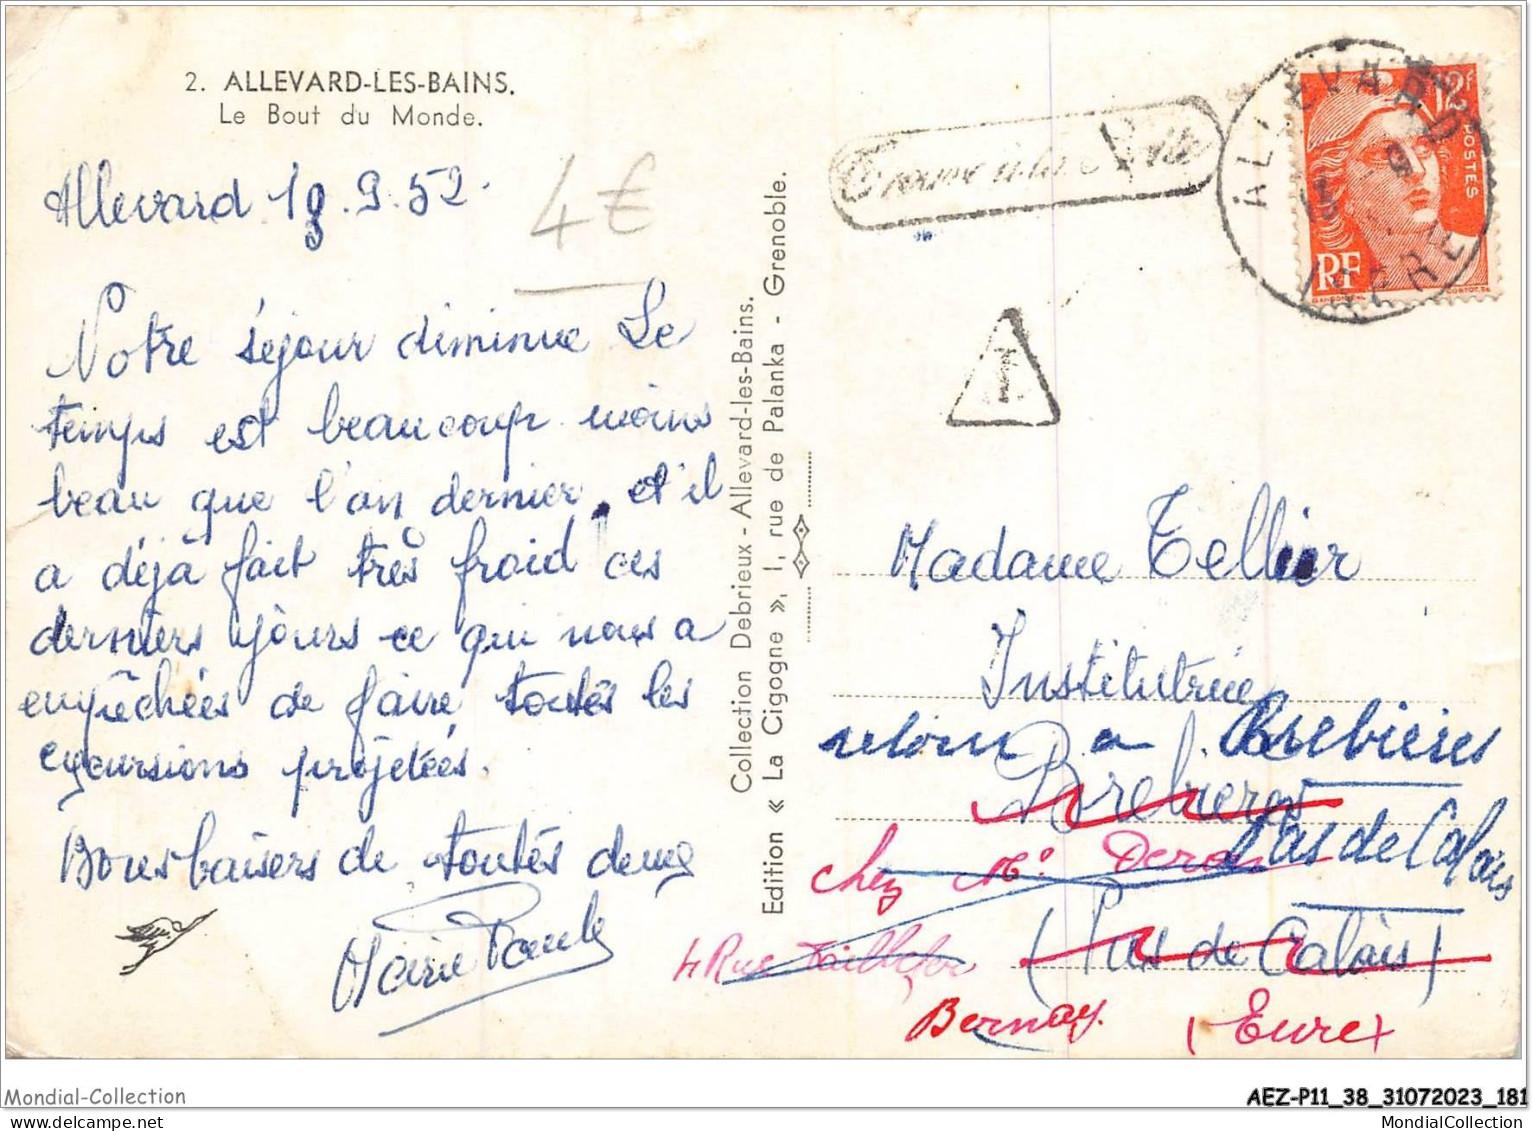 2. ALLEVARD-LES-BAINS.
Le Bout du Monde.
Allevard 19.9.52.
4€
Notre séjour diminue Le
temps est beaucoup moins
beau que l'an dernier. et il
a déjà fait très froid ces
derniers jours ce qui nous a
empêchées de faire toutes les
excursions projetées.
Bons baisers de toutes deux
Marie Paule
Collection Debrieux - Allevard-les-Bains.
Edition « La Cigogne », 1, rue de Palanka - Grenoble.
Trouvé à la Boîte
ALLEVARD
ISERE
12F
POSTES
RF
T
Madame Tellier
Institutrice
retour a Brebières
Brebières
Pas de Calais
chez Me
(Pas de Calais)
4 Rue
Bernay. (Eure)
Mondial-Collection
AEZ-P11_38_31072023_181
MondialCollection